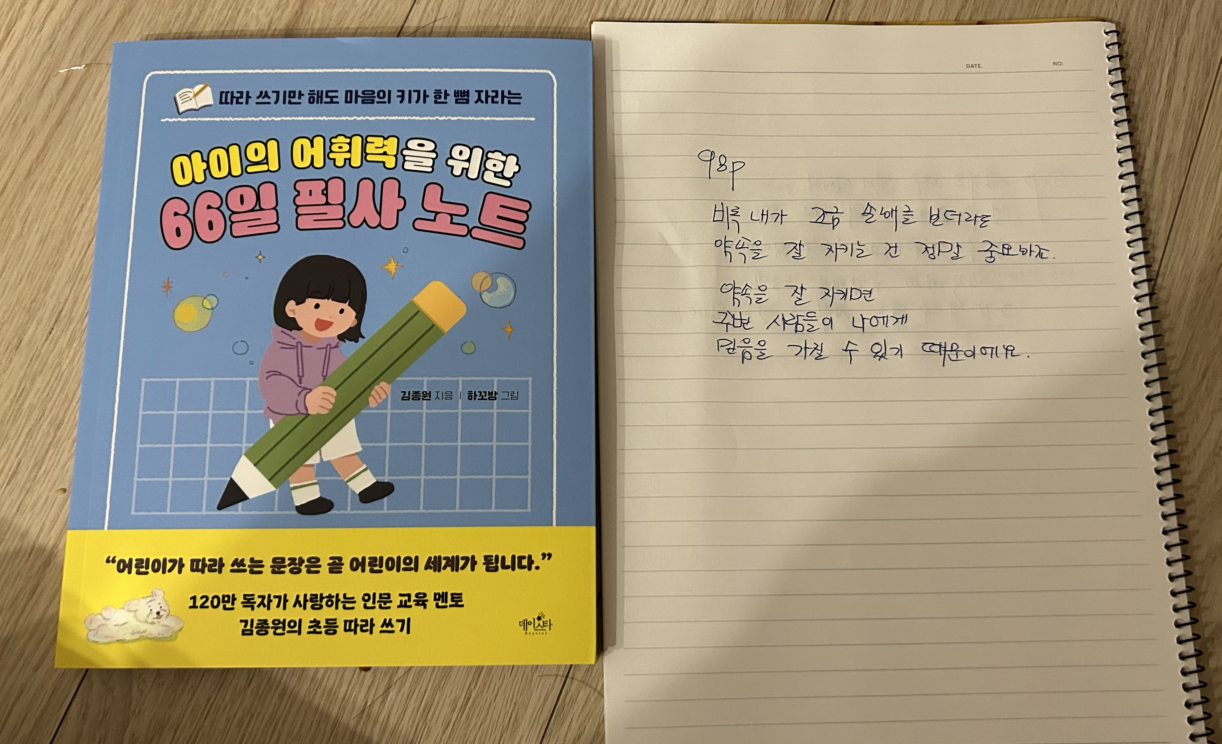 따라 쓰기만 해도 마음의 키가 한 뼘 자라는
아이의 어휘력을 위한
66일 필사 노트
김종원 지음 | 하꼬방 그림
“어린이가 따라 쓰는 문장은 곧 어린이의 세계가 됩니다.”
120만 독자가 사랑하는 인문 교육 멘토
김종원의 초등 따라 쓰기
데이스타
Daystar
DATE. NO.
98p
비록 내가 조금 손해를 보더라도
약속을 잘 지키는 건 정말 중요하죠.
약속을 잘 지키면
주변 사람들이 나에게
믿음을 가질 수 있기 때문이에요.